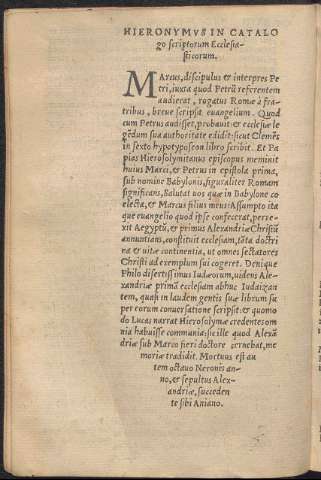 HIERONYMVS IN CATALO
go scriptorum Ecclesia-
sticorum.
MArcus, discipulus et interpres Pe
tri, iuxta quod Petrũ referentem
audierat, rogatus Romæ à fra-
tribus, breue scripsit euangelium. Quod
cum Petrus audisset, probauit et ecclesiæ le
gẽdum sua authoritate edidit: sicut Clemẽs
in sexto hypotyposeon libro scribit. Et Pa
pias Hierosolymitanus episcopus meminit
huius Marci, et Petrus in epistola prima,
sub nomine Babylonis, figuraliter Romam
significans, Salutat vos quæ in Babylone co
electa, et Marcus filius meus. Assumpto ita
que euangelio quod ipse confecerat, perre-
xit Aegyptũ, et primus Alexandriæ Christũ
annuntians, constituit ecclesiam, tãta doctri
na et uitæ continentia, ut omnes sectatores
Christi ad exemplum sui cogeret. Denique
Philo disertissimus Iudæorum, uidens Ale-
xandriæ primã ecclesiam adhuc Iudaizan
tem, quasi in laudem gentis suæ librum su
per eorum conuersatione scripsit: et quomo
do Lucas narrat Hierosolymæ credentes om
nia habuisse communia: sic ille quod Alexã
driæ sub Marco fieri doctore cernebat, me
moriæ tradidit. Mortuus est au
tem octauo Neronis an-
no, et sepultus Alex-
andriæ, succeden
te sibi Aniano.